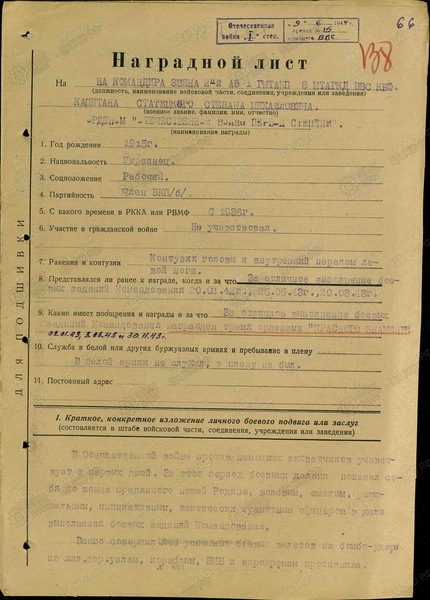 Отечественная
война I степ.
9 6 1944 г.
приказ № 10
ВВС
66
Наградной лист
На НА КОМАНДИРА ЗВЕНА 2-й АЭ 1 ГМТАП 8 МТАКД ВВС КБФ.
(должность, наименование войсковой части, соединения, учреждения или заведения)
КАПИТАНА СТАТЕЦКОГО СТЕПАНА МИХАЙЛОВИЧА.
(военное звание, фамилия, имя, отчество)
ОРДЕНОМ "ОТЕЧЕСТВЕННОЙ ВОЙНЫ ПЕРВОЙ СТЕПЕНИ".
(наименование награды)
1. Год рождения 1915г.
2. Национальность Украинец.
3. Соцположение Рабочий.
4. Партийность Член ВКП/б/.
5. С какого времени в РККА или РВМФ С 1936г.
6. Участие в гражданской войне Не участвовал.
7. Ранения и контузии Контузия головы и внутренний перелом ле-
вой ноги.
8. Представлялся ли ранее к награде, когда и за что За отличное выполнение бое-
вых заданий Командования
9. Какие имеет поощрения и награды и за что За отличное выполнение боевых
заданий Командования награжден тремя орденами "КРАСНОГО ЗНАМЕНИ"
10. Служба в белой или других буржуазных армиях и пребывание в плену
В белой армии не служил, в плену не был.
11. Постоянный адрес
ДЛЯ ПОДШИВКИ
I. Краткое, конкретное изложение личного боевого подвига или заслуг
(составляется в штабе войсковой части, соединения, учреждения или заведения)
В Отечественной войне против немецких захватчиков участву-
вует с первых дней. За этот период боевыми делами показал се-
бя до конце преданного нашей Родине, волевым, смелым, реши-
тельным, инициативным, тактически грамотным офицером в деле
выполнения боевых заданий Командования.
Всего совершил успешных боевых вылетов на бомбо-удары
по жел.дор.узлам, кораблям, ВМБ и аэродромам противника.